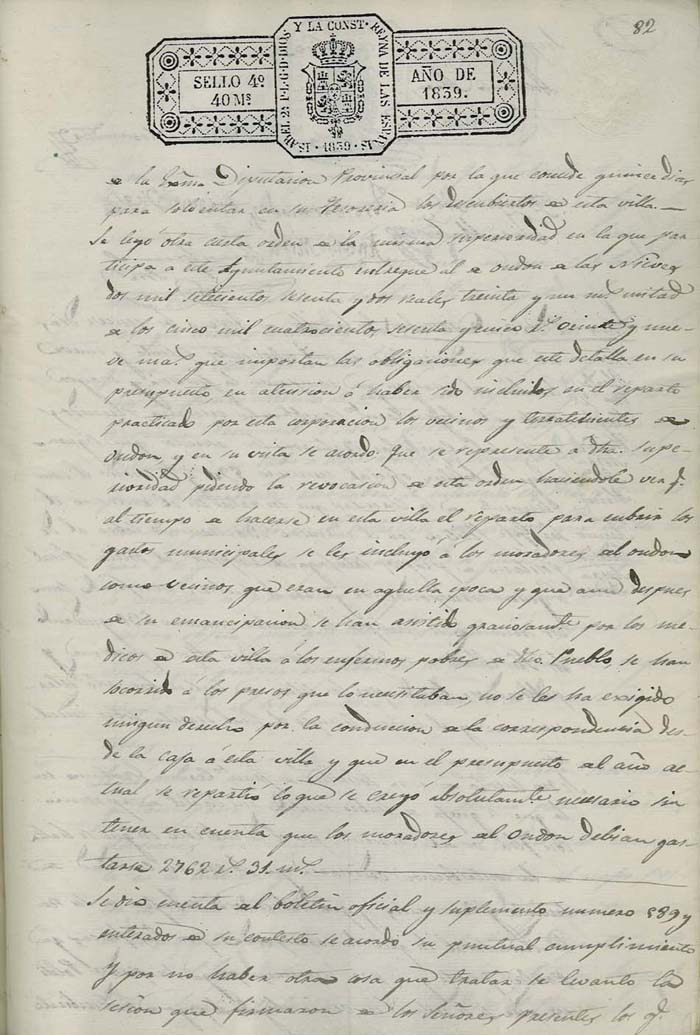 82
SELLO 4º 40 Mˢ
ISABEL 2ª P. L. G. D. DIOS Y LA CONST. REYNA DE LAS ESPAÑAS
1839
AÑO DE 1839.
de la Exma Diputacion Provincial por la que concede quince dias
para solventar en su Tesoreria los descubiertos de esta villa.
Se leyó otra orden de la misma superioridad en la que par-
ticipa a este Ayuntamiento entregue al de ondon de las Nieves
dos mil setecientos sesenta y dos reales treinta y un mˢ mitad
de los cinco mil cuatrocientos sesenta y cinco rˢ veinte y nue-
ve maˢ que importan las obligaciones que este detalla en su
presupuesto en atension á haber sido incluidos en el reparto
practicado por esta corporacion los vecinos y terratenientes de
ondon y en su vista se acordo: Que se represente a dha. supe-
rioridad pidiendo la revocasion de esta orden haciendole ver q.
al tiempo de hacerse en esta villa el reparto para cubrir los
gastos municipales se les incluyó á los moradores del ondon
como vecinos que eran en aquella epoca y que aun despues
de su emancipacion se han asistido graciosamte. por los me-
dicos de esta villa á los enfermos pobres de dho. Pueblo, se han
socorrido á los presos que lo necesitaban, no se les ha exigido
ningun derecho por la conduccion de la correspondencia des-
de la caja á esta villa y que en el presupuesto del año ac-
tual se repartió lo que se creyó absolutamte. necesario sin
tener en cuenta que los moradores del ondon debian gas-
tarse 2762 rˢ. 31. mˢ.
Se dio cuenta del boletin oficial y suplemento numero 589 y
enterados de su contesto se acordo su puntual cumplimiento
Y por no haber otra cosa que tratar se levanto la
sesion que firmaron de los Señores presentes los q.